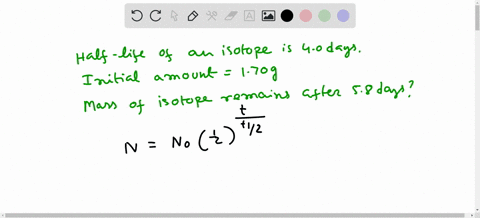 Half-life of an isotope is 4.0 days.
Initial amount = 1.70g
Mass of isotope remains after 5.8 days?
N = N₀ (1/2)^(t/t1/2)